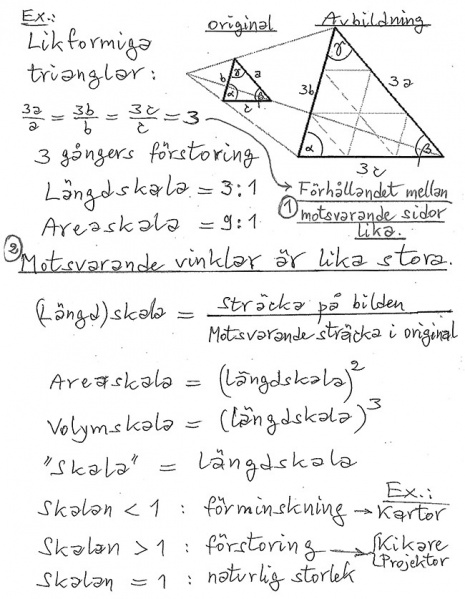 Ex.:
Likformiga
trianglar:
original
Avbildning
b γ a
α β
c
γ
3b 3a
α β
3c
3a/a = 3b/b = 3c/c = 3
3 gångers förstoring
Längdskala = 3:1
Areaskala = 9:1
→ Förhållandet mellan
① motsvarande sidor
lika.
② Motsvarande vinklar är lika stora.
(Längd)skala = Sträcka på bilden / Motsvarande sträcka i original
Areaskala = (längdskala)²
Volymskala = (längdskala)³
"Skala" = Längdskala
Skalan < 1 : förminskning → Ex.: Kartor
Skalan > 1 : förstoring → { Kikare
Projektor
Skalan = 1 : naturlig storlek